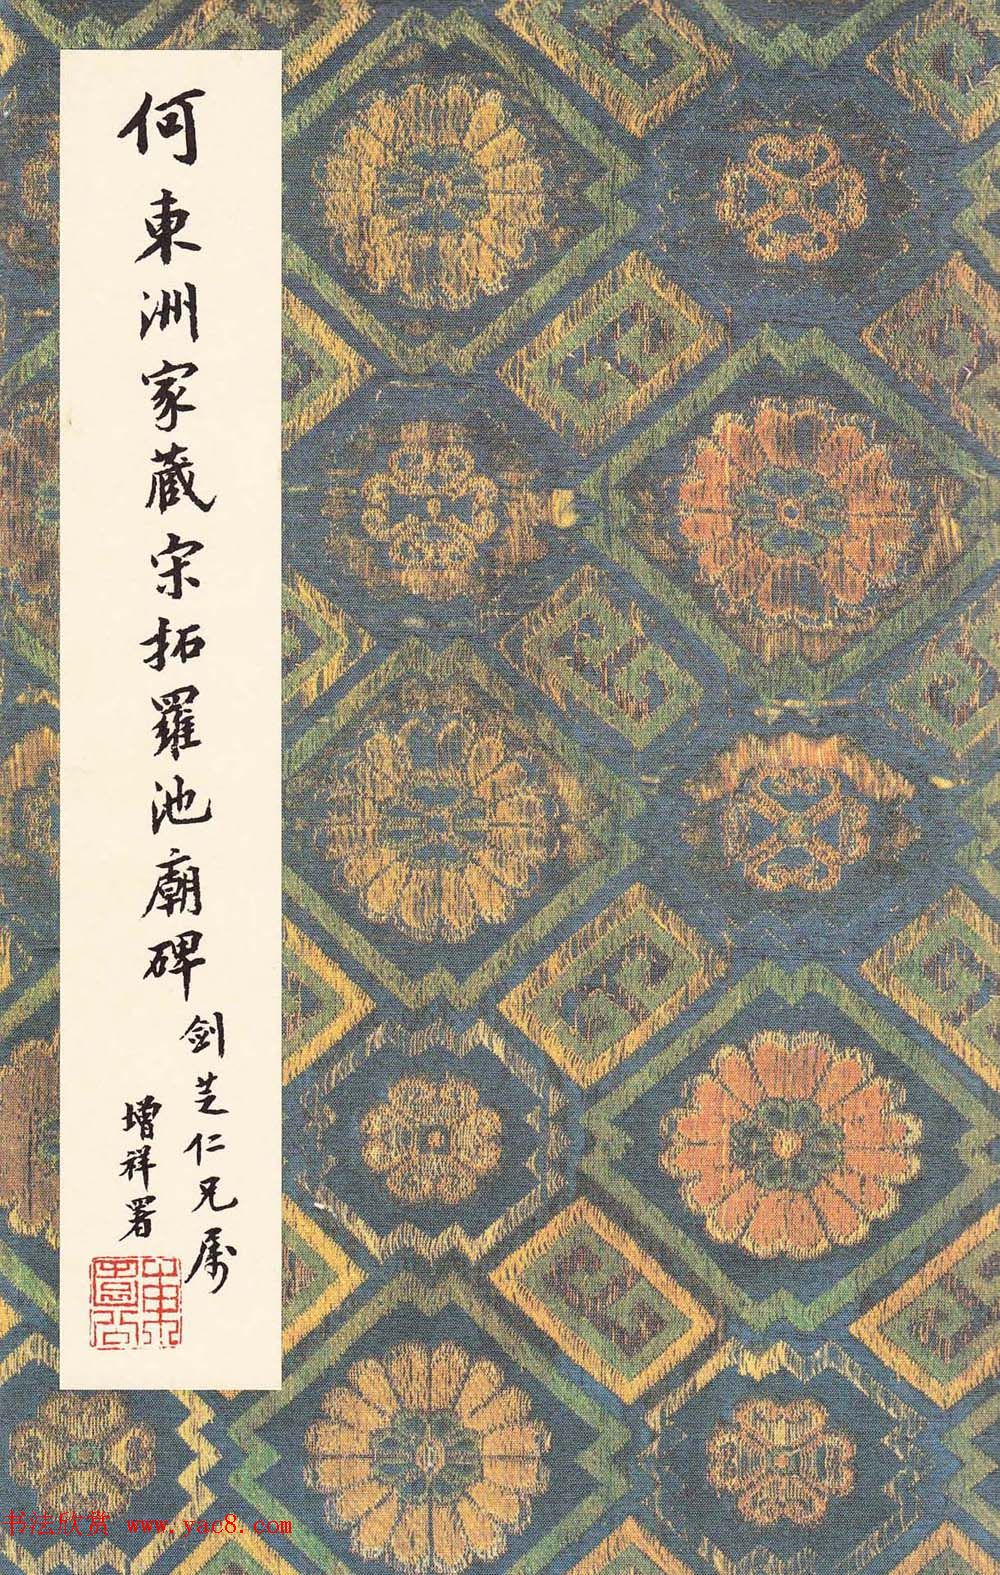 何東洲家藏宋拓羅池廟碑
剑芝仁兄属
增祥署
书法欣赏 www.yac8.com